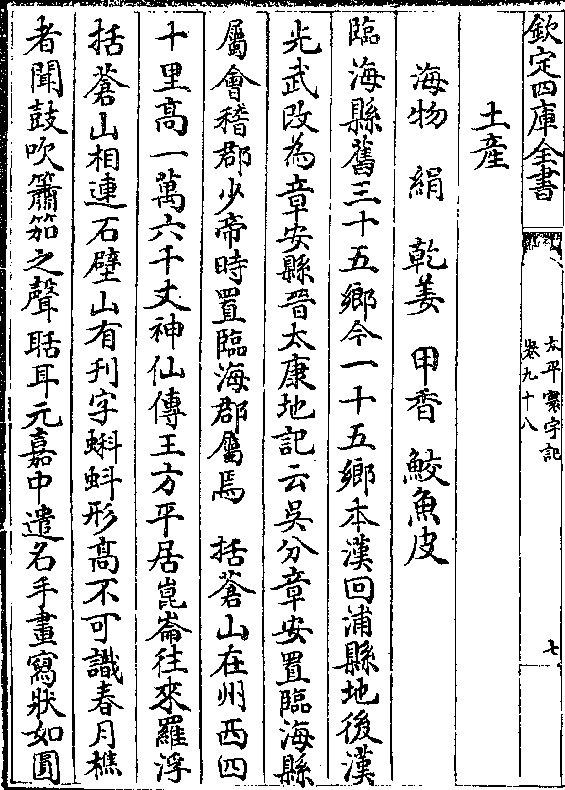 欽定四庫全書
太平寰宇記
卷九十八
七
土産
海物　絹　乾姜　甲香　鮫魚皮
臨海縣舊三十五鄉今一十五鄉本漢回浦縣地後漢
光武改為章安縣晉太康地記云吳分章安置臨海縣
屬會稽郡少帝時置臨海郡屬焉　括蒼山在州西四
十里高一萬六千丈神仙傳王方平居崑崙往來羅浮
括蒼山相連石壁山有刋字蝌蚪形高不可識春月樵
者聞鼓吹簫笳之聲聒耳元嘉中遣名手畫寫狀如圓